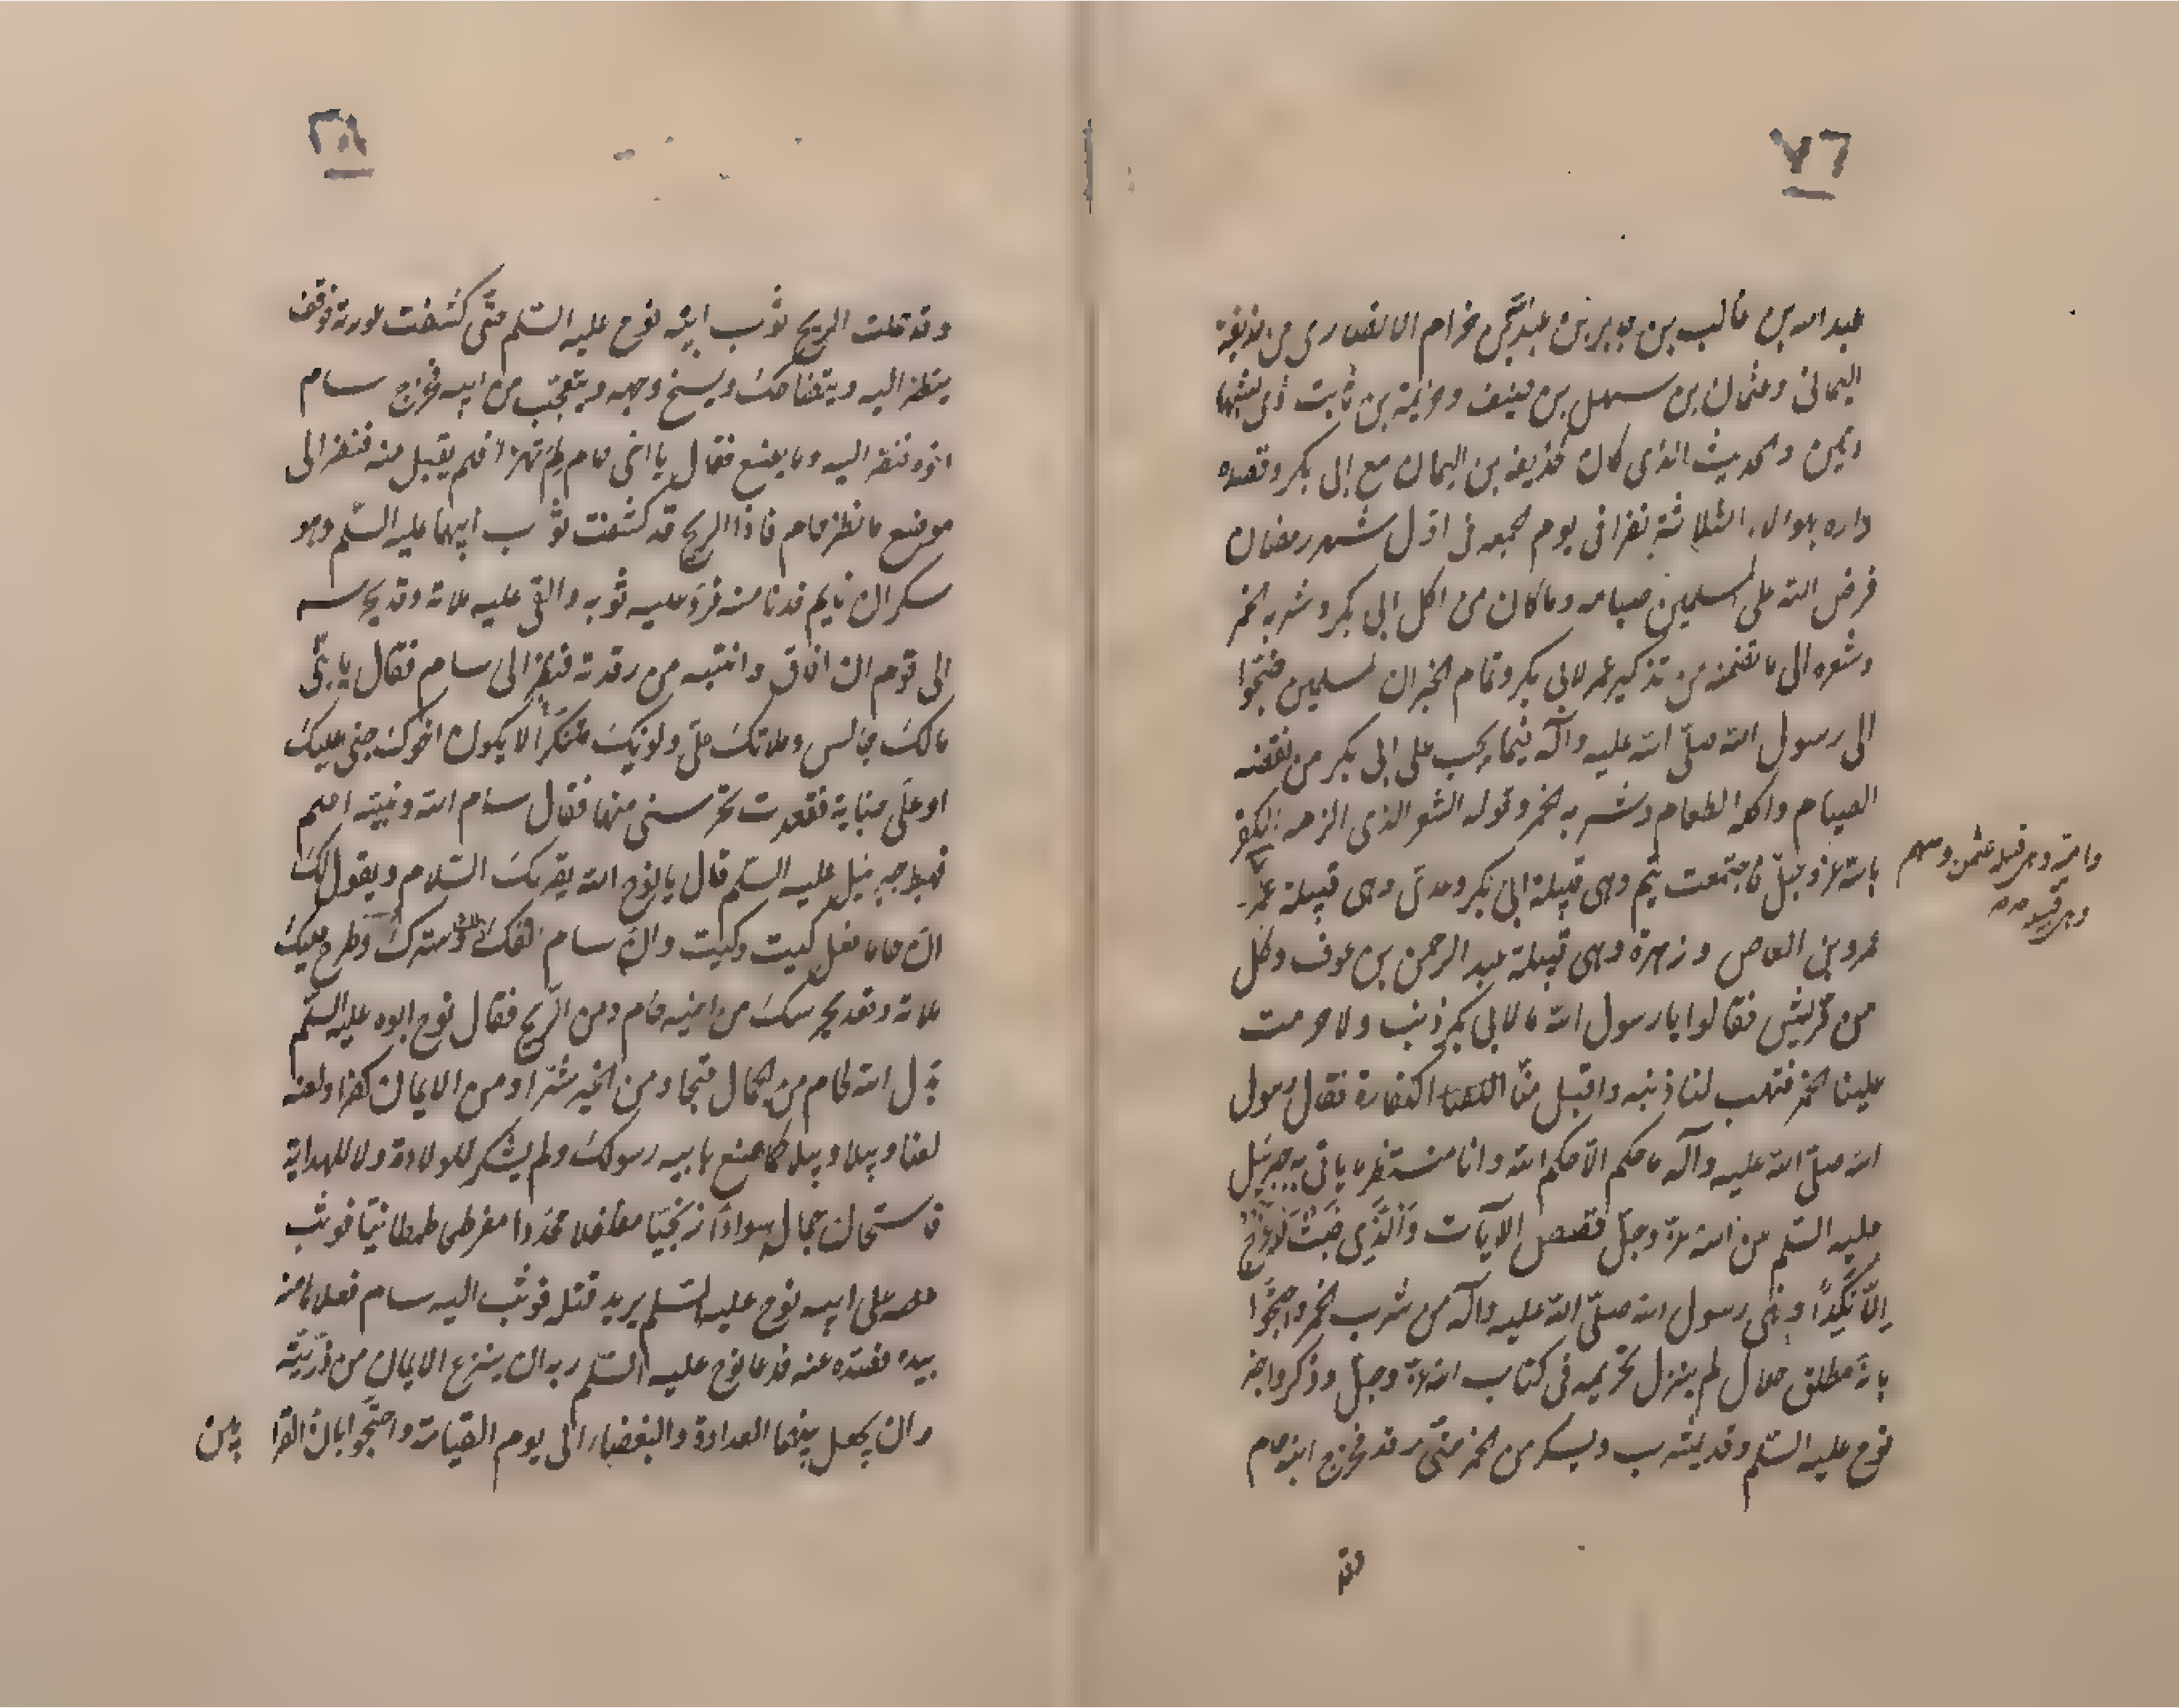 ٧٦
عبد الله بن غالب بن جابر بن عبد حرام الانصارى من حذيفة
اليمانى وعثمان بن سهل بن حنيف وخزيمة بن ثابت ذى لشها
دتين والحديث الذى كان لحذيفة بن اليمان مع ابى بكر وقصده
داره بهوالاء الثلاثة نفرا فى يوم جمعه فى اول شهر رمضان
فرض الله على المسلمين صيامه وما كان من اكل ابى بكر وشربه الخمر
وشعره الى ما تضمنه من تذكير عمر لابى بكر وتمام الخبر ان المسلمين ضجوا
الى رسول الله صلّى الله عليه وآله فيما يجب على ابى بكر من نقضه
الصيام واكله الطعام وشربه الخمر وقوله الشعر الذى الزمه الكفر
بالله عز وجلّ فاجتمعت تيم وهى قبيلة ابى بكر وعدى وهى قبيلة عمر
وامية وهى قبيلة عثمن وسهم
وهى قبيلة
عمرو بن العاص وزهرة وهى قبيلة عبد الرحمن بن عوف وكل
من قريش فقالوا يا رسول الله ما لابى بكر ذنب ولا حرمت
علينا الخمر فتهب لنا ذنبه واقبل منّا الكفارة فقال رسول
الله صلّى الله عليه وآله ما حكم الّا حكم الله وانا منتظر ما ياتى به جبرئيل
عليه السّلم من الله عزّ وجلّ فقصص الآيات وَالَّذِي خَبُثَ لَا يَخْرُجُ
اِلَّا نَكِدًا ونهى رسول الله صلّى الله عليه وآله من شرب الخمر واحتجّوا
بانه مطلق حلال لم ينزل تحريمه فى كتاب الله عزّ وجلّ وذكروا خبر
نوح عليه السّلم وقد يشرب ويسكر من الخمر حتّى رقد فخرج ابنه حام
وقد
٢٨
وقد قلت الريح ثوب ابيه نوح عليه السّلم حتّى كشفت عورته فوقف
ينظر اليه ويتضاحك ويسخ وجهه ويتعجّب من ابيه فخرج سام
اخوه فنظر اليه وما يصنع فقال يا اخى حام لِمَ تهزأ فلم يقبل منه فنظر الى
موضع ما نظر حام فاذا الريح قد كشفت ثوب ابيهما عليه السّلم وهو
سكران نايم فدنا منه فردّ عليه ثوبه والقى عليه ملاءة وقد يحرسه
الى قوم ان افاق وانتبه من رقدته فنظر الى سام فقال يا بنىّ
مالك جالس وملاءتك علىّ ولونك متنكّرًا لا يكون اخوك جنى عليك
او علَى جناية فقعدت تحرسنى منها فقال سام الله ونبيّه اعلم
فهبط جبرئيل عليه السّلم قال يا نوح الله يقرئك السّلام ويقول لك
انّ حاما فعل كيت وكيت وانّ سام وسترك وطرح عليك
ملاءة وقعد يحرسك من اخيه حام ومن الرّيح فقال نوح ابوه عليه السّلم
بدّل الله لحام من الجمال قبحا ومن الخير شرّا ومن الايمان كفرا ولعنه
لعنا وبيلا وبيلا كما صنع بابيه رسولك ولم يشكر للولادة ولا للهداية
فاستحال جمال سوادًا زنجيّا مفلفلا مجدّدا مفرطى طمطانيّا فوثب
على ابيه نوح عليه السّلم يريد قتله فوثب اليه سام فعلا هامته
بيده فصدّه عنه فدعا نوح عليه السّلم ربه ان ينزع الايمان من ذرّيّته
وان يجعل بينهما العداوة والبغضاء الى يوم القيامة واحتجّوا بان القرا
بين